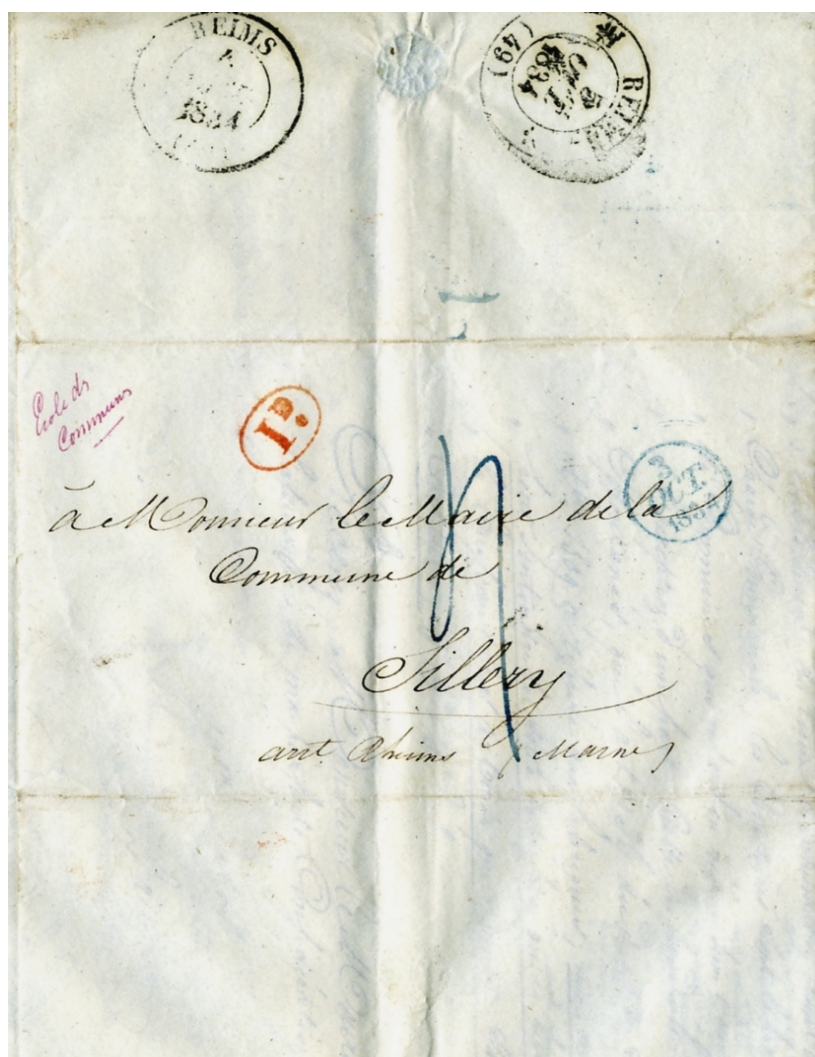 REIMS
1834
REIMS
5
OCT
1834
(49)
École ds
Communs
1D.
3
OCT.
1834
à Monsieur le Maire de la
Commune de
Sillery
arrt. Rheims (Marne)